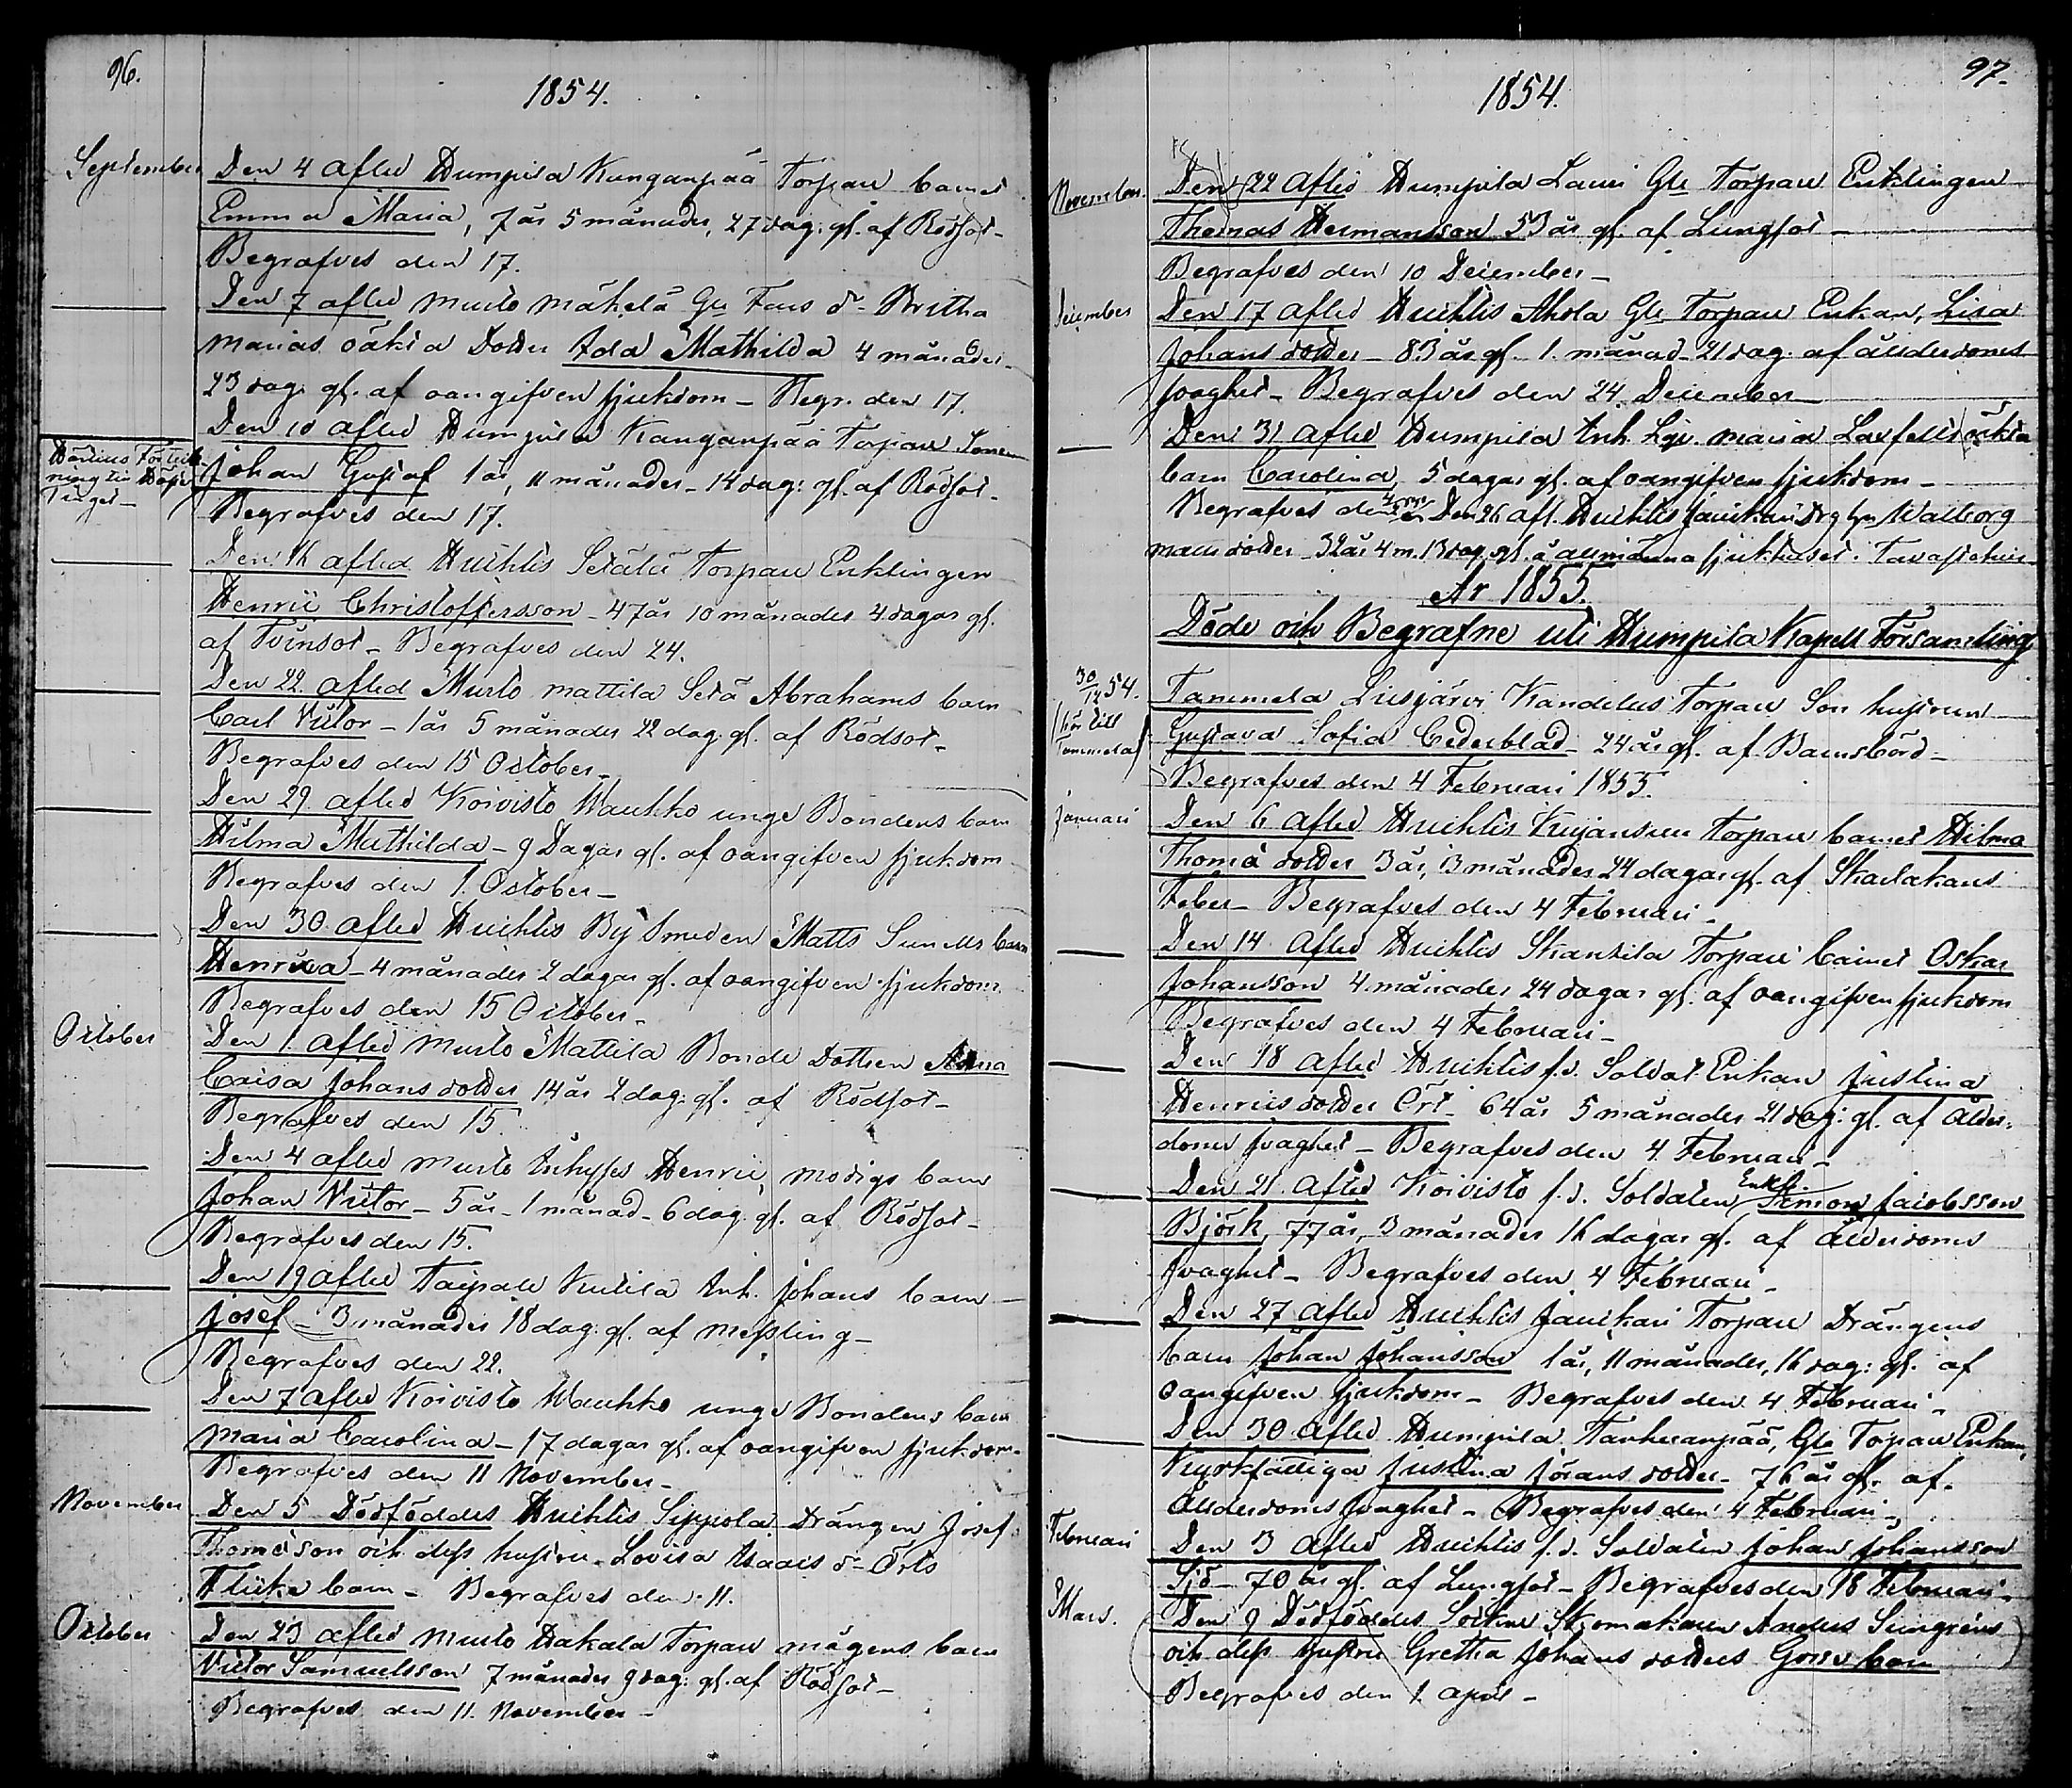 96.
1854.
September
Den 4 Afled Humpila Kanganpää Torpare barnet
Emma Maria, 7 år 5 månader, 27 dag: gl. af Rödsot-
Begrafves den 17.
Den 7 afled Murto Mäkelä Gle Fars d. Britha
Marias oäkta Dotter Ida Mathilda 4 månader
23 dag: gl. af oangifven sjukdom - Begr. den 17.
Den 10 Afled Humpila Kanganpää Torpare Sonen
Johan Gustaf 1 år, 11 månader - 14 dag: gl. af Rödsot-
Begrafves den 17.
Den 16 afled Huhtis Setälä Torpare Enklingen
Henric Christoffersson - 47 år 10 månader 4 dagar gl.
af Tvinsot - Begrafves den 24.
Den 22 afled Murto Mattila Setä Abrahams barn
Carl Victor - 1 år 5 månader 22 dag: gl. af Rödsot-
Begrafves den 15 October-
Den 29 afled Koivisto Waukko unge Bondens barn
Hilma Mathilda - 9 Dagar gl. af oangifven sjukdom
Begrafves den 1. October-
Den 30 afled Huhtis By Smeden Matts Sunells barn
Henrica - 4 månader 2 dagar gl. af oangifven sjukdom
Begrafves den 15 October-
October
Den 1 afled Murto Mattila Bonde Dottren Anna
Caisa Johans dotter 14 år 2 dag: gl. af Rödsot-
Begrafves den 15.
Den 4 afled Murto Inhyses Henric Modigs barn
Johan Victor - 5 år - 1 månad - 6 dag: gl. af Rödsot-
Begrafves den 15.
Den 19 afled Taipale Inh. Johans barn
Josef - 3 månader 18 dag: gl. af Messling-
Begrafves den 22.
Den 7 afled Koivisto Waukko unge Bondens barn
Maria Carolina - 17 dagar gl. af oangifven sjukdom-
Begrafves den 11 November-
November
Den 5 Dödföddes Huhtis Sippola Drängen Josef
Thomeson och dess hustru Lovisa Isaacs d. Örts
Flicke barn - Begrafves den 11.
October
Den 23 afled Murto Hakala Torpare mågens barn
Victor Samuelsson 7 månader 9 dag: gl. af Rödsot-
Begrafves den 11. November-
97.
1854.
November
Den 22 Afled Humpila Lauri Gle Torpare Enklingen
Thomas Hermansson 53 år gl. af Lungsot-
Begrafves den 10 December-
December
Den 17 Afled Huhtis Ahola Gle Torpare Enkan, Lisa
Johans dotter - 83 år gl. 1 månad - 21 dag. af ålderdoms
svaghet - Begrafves den 24 December-
Den 31 Afled Humpila Inh. Maria oäkta
barn Carolina, 5 dagar gl. af oangifven sjukdom-
Begrafves den Den 26 Afl. Huhtis Walborg
Matts dotter 32 år 4 m. 13 dag. gl. å allmänna sjukhuset i Tavastehus
År 1855.
Döde och Begrafne uti Humpila Kapell Församling
30/12 54.
(hör till
Tammela)
Tammela Liesjärvi Torpare Son hustrun
Gustava Sofia Cederblad 24 år gl. af Barnsbörd-
Begrafves den 4 Februari 1855.
Januari
Den 6 Afled Huhtis Kujansuu Torpare barnet Hilma
Thoma dotter 3 år, 3 månader 24 dagar gl. af Skarlakans
Feber - Begrafves den 4 Februari-
Den 14 Afled Huhtis Skantila Torpare barnet Oskar
Johansson 4 månader 24 dagar gl. af oangifven sjukdom
Begrafves den 4 Februari-
Den 18 Afled Huhtis f.d. Soldat Enkan Justina
Henricsdotter Ört - 64 år 5 månader 21 dag: gl. af Ålder-
doms svaghet - Begrafves den 4 Februari-
Den 21 Afled Koivisto f.d. Soldaten Enkl. Simon Jacobsson
Björk, 77 år, 3 månader 16 dagar gl. af Ålderdoms
svaghet - Begrafves den 4 Februari-
Den 27 Afled Huhtis Torpare Drängens
barn Johan Johansson 1 år, 11 månader, 16 dag: gl. af
oangifven sjukdom - Begrafves den 4 Februari-
Den 30 Afled Humpila Tanhuanpää, Gle Torpare Enkan,
Kyrkfattiga Justina Jörans dotter - 76 år gl. af
Ålderdoms svaghet - Begrafves den 4 Februari-
Februari
Den 3 Afled Huhtis f.d. Soldaten Johan Johansson
Sjö - 70 år gl. af Lungsot - Begrafves den 18 Februari-
Mars.
Den 9 Dödföddes Socken Skomakaren Anders Sungrens
och dess hustru Gretha Johans dotters Gosse barn
Begrafves den 1 April-